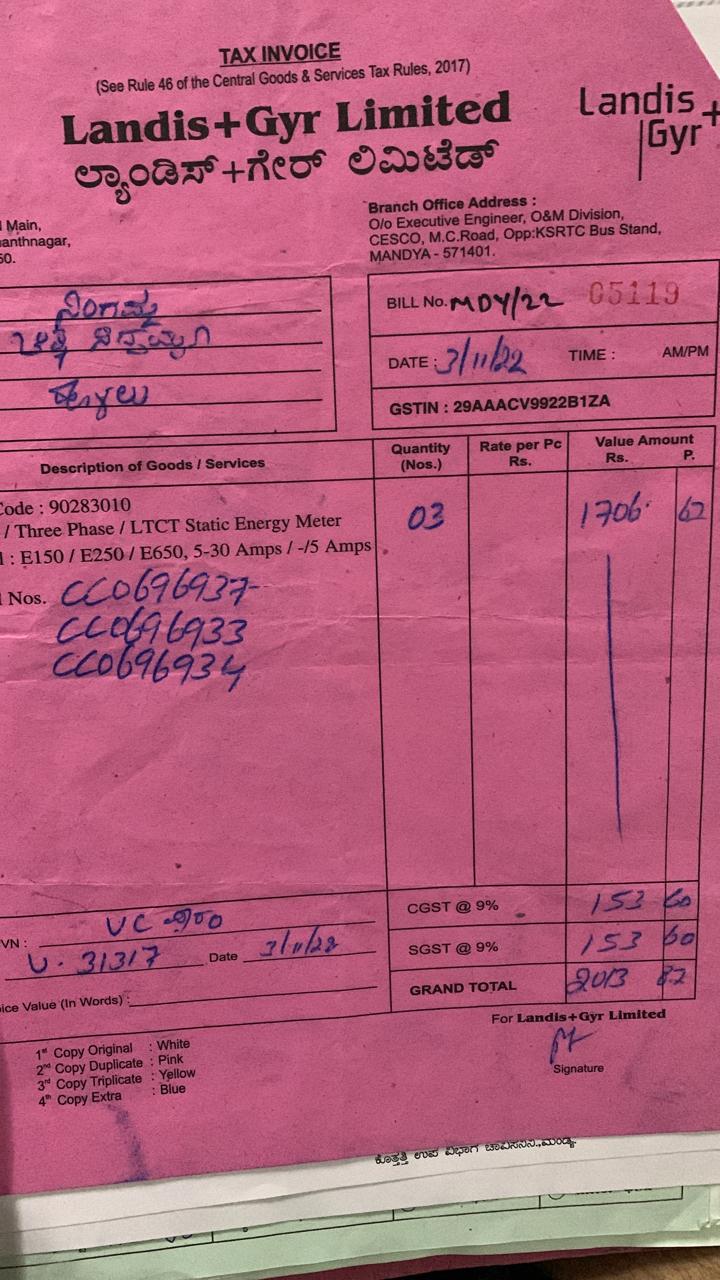 TAX INVOICE
(See Rule 46 of the Central Goods & Services Tax Rules, 2017)
Landis+Gyr Limited
ಲ್ಯಾಂಡಿಸ್+ಗೇರ್ ಲಿಮಿಟೆಡ್
Landis
Gyr+
Main,
anthnagar,
Branch Office Address :
O/o Executive Engineer, O&M Division,
CESCO, M.C.Road, Opp:KSRTC Bus Stand,
MANDYA - 571401.
ನಿಂಗಮ್ಮ
BILL No. MDY/22 05119
DATE : 3/11/22 TIME : AM/PM
GSTIN : 29AAACV9922B1ZA
Description of Goods / Services
Quantity (Nos.)
Rate per Pc Rs.
Value Amount Rs. P.
Code : 90283010
/ Three Phase / LTCT Static Energy Meter
: E150 / E250 / E650, 5-30 Amps / -/5 Amps
03 1706. 62
Nos. CC0696937
CC0696933
CC0696934
VN : VC
U. 31317 Date 3/11/22
ice Value (In Words) :
CGST @ 9% 153 60
SGST @ 9% 153 60
GRAND TOTAL 2013 82
For Landis+Gyr Limited
Signature
1st Copy Original : White
2nd Copy Duplicate : Pink
3rd Copy Triplicate : Yellow
4th Copy Extra : Blue
ಕೊತ್ತತ್ತಿ ಉಪ ವಿಭಾಗ ಚಾವಿಸನಿನಿ.,ಮಂಡ್ಯ.